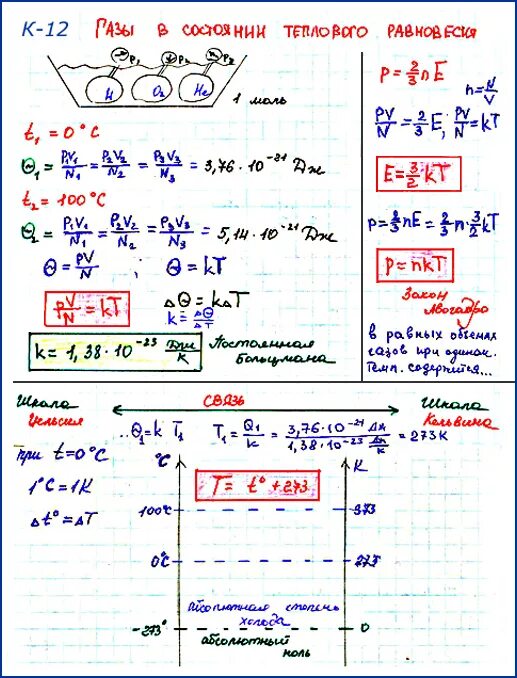 К-12 ГАЗЫ В СОСТОЯНИИ ТЕПЛОВОГО РАВНОВЕСИЯ
P₁ P₂ P₃
H O₂ He
1 моль
t₁ = 0°C
Θ₁ = P₁V₁/N₁ = P₂V₂/N₂ = P₃V₃/N₃ = 3,76·10⁻²¹ Дж
t₂ = 100°C
Θ₂ = P₁V₁/N₁ = P₂V₂/N₂ = P₃V₃/N₃ = 5,14·10⁻²¹ Дж
Θ = pV/N ; Θ = kT
pV/N = kT
ΔΘ = kΔT
k = ΔΘ/ΔT
k = 1,38·10⁻²³ Дж/К
Постоянная
Больцмана
P = 2/3 n E
n = N/V
PV/N = 2/3 E; PV/N = kT
E = 3/2 kT
p = 2/3 nE = 2/3 n · 3/2 kT
p = nkT
Закон
Авогадро
в равных объёмах
газов при одинак.
темп. содержится...
Шкала СВЯЗЬ Шкала
Цельсия Кельвина
..Θ₁ = k T₁ T₁ = Θ₁/k = 3,76·10⁻²¹ Дж / 1,38·10⁻²³ Дж/К = 273K
При t = 0°C
1°C = 1K
Δt° = ΔT
°C K
T = t° + 273
100°C 373
0°C 273
Абсолютная степень
холода
-273° 0
абсолютный
ноль